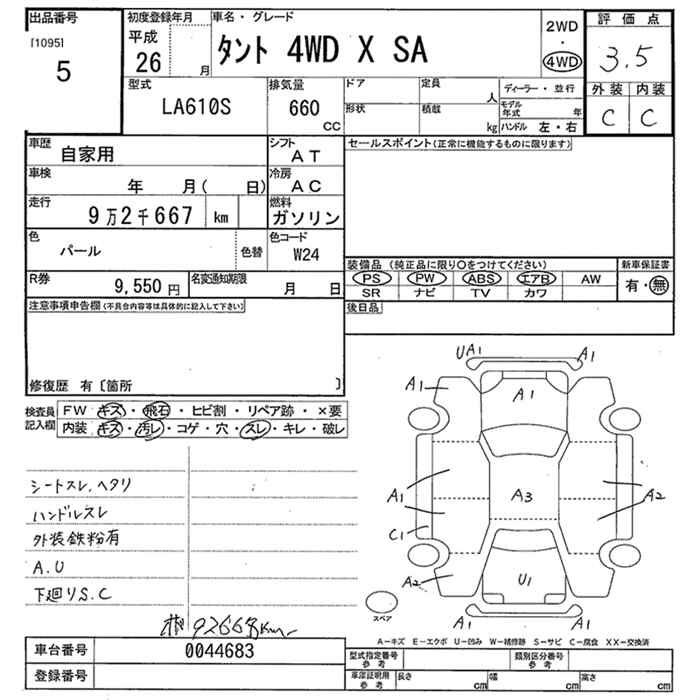 出品番号
[1095]
5
初度登録年月
平成
26
月
車名・グレード
タント 4WD X SA
2WD
・
4WD
評価点
3.5
外装
内装
C
C
型式
LA610S
排気量
660
CC
ドア
形状
定員
人
積載
kg
ディーラー・並行
モデル
年式
年
ハンドル 左・右
車歴
自家用
シフト
AT
車検
年 月( 日)
冷房
AC
走行
9万2千667
km
燃料
ガソリン
色
パール
色替
色コード
W24
R券
9,550 円
名変通知期限
月 日
セールスポイント(正常に機能するものに限ります)
装備品 (純正品に限り○をつけてください)
新車保証書
PS
PW
ABS
エアB
AW
有・無
SR
ナビ
TV
カワ
後日品
注意事項申告欄(不具合内容等は具体的に記入して下さい)
修復歴 有〔箇所 〕
検査員
記入欄
FW キズ・飛石・ヒビ割・リペア跡・×要
内装 キズ・汚レ・コゲ・穴・スレ・キレ・破レ
シートスレ、ヘタリ
ハンドルスレ
外装鉄粉有
A.U
下廻りS.C
92668km
UA1
A1
A1
A1
A1
A1
A3
A2
C1
A2
U1
A1
A1
スペア
A-キズ E-エクボ U-凹み W-補修跡 S-サビ C-腐食 XX-交換済
車台番号
0044683
登録番号
型式指定番号
参考
類別区分番号
参考
車庫証明用
参考
長さ
cm
幅
cm
高さ
cm